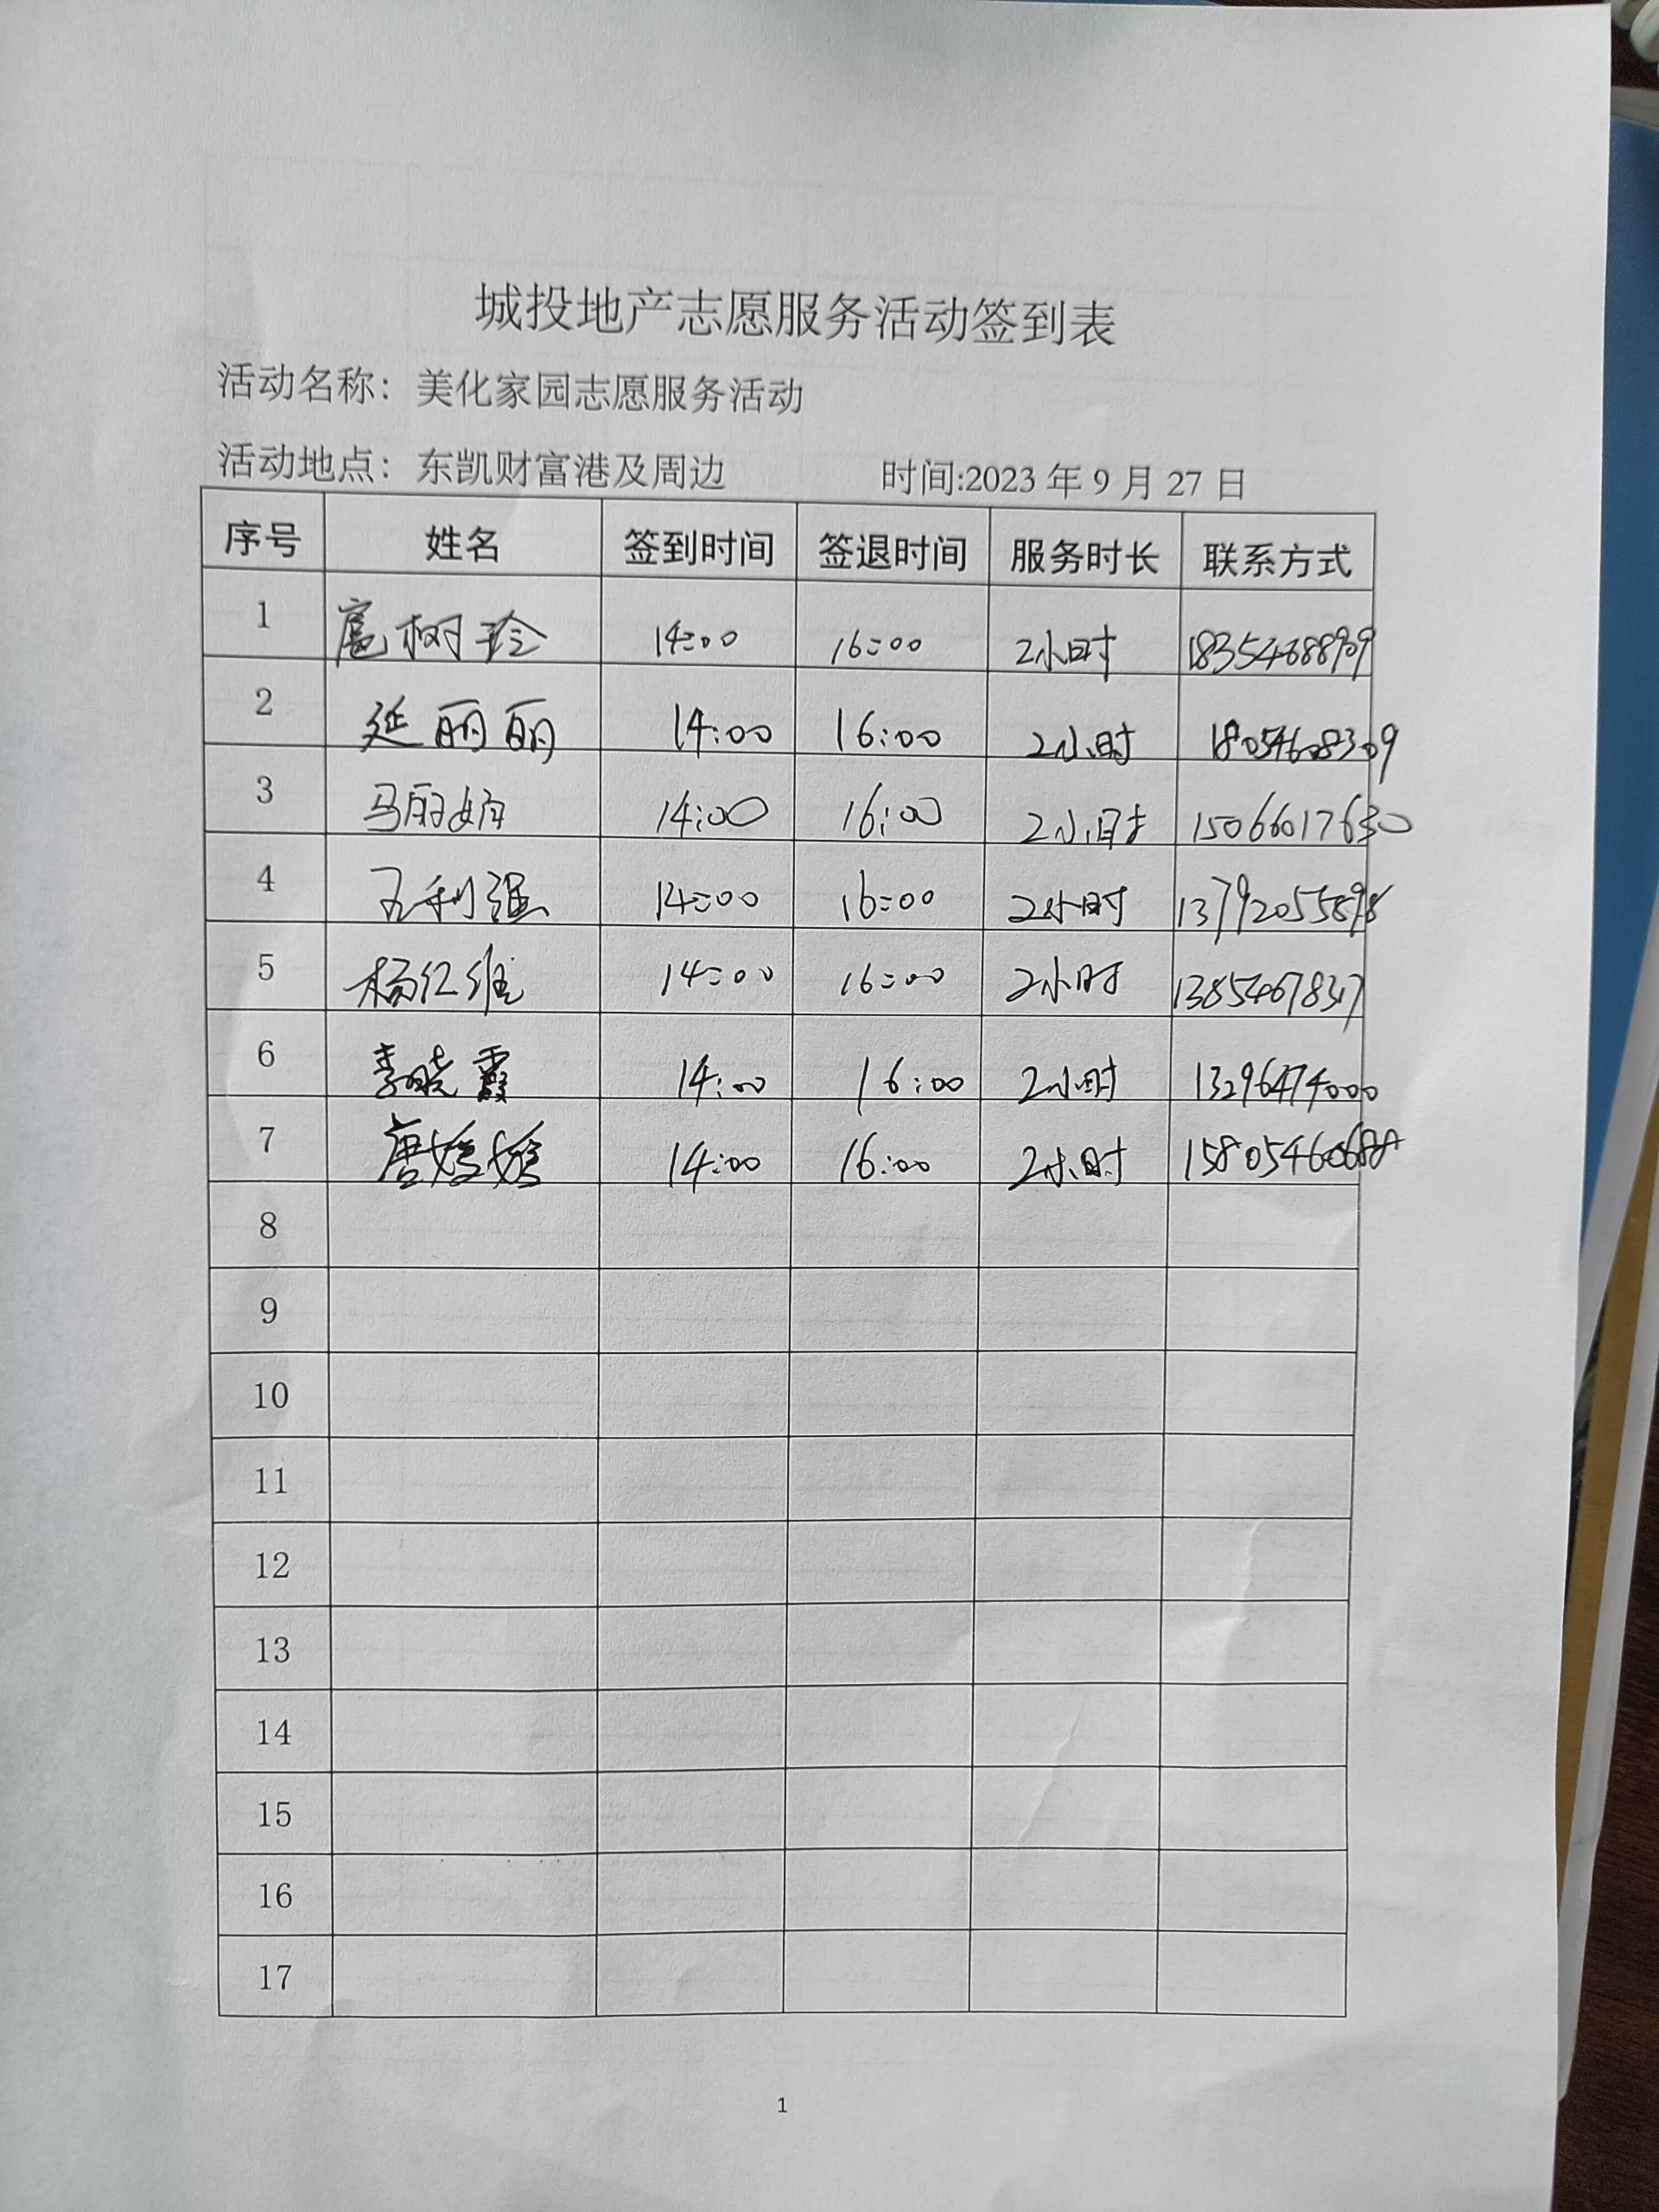 城投地产志愿服务活动签到表
活动名称：美化家园志愿服务活动
活动地点：东凯财富港及周边 时间:2023 年 9 月 27 日
序号 姓名 签到时间 签退时间 服务时长 联系方式
1 扈树玲 14:00 16:00 2小时
2 延丽丽 14:00 16:00 2小时 18054608309
3 马丽娟 14:00 16:00 2小时 15066017630
4 王利强 14:00 16:00 2小时 13792055898
5 杨红维 14:00 16:00 2小时
6 李晓霞 14:00 16:00 2小时 13296474000
7 唐 14:00 16:00 2小时 15805460688
8
9
10
11
12
13
14
15
16
17
1